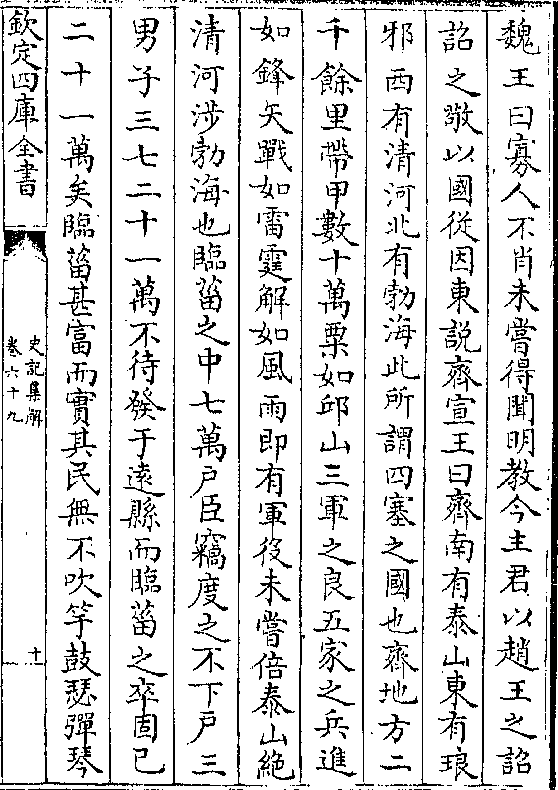 魏王曰寡人不肖未嘗得聞明教今主君以趙王之詔
詔之敬以國從因東說齊宣王曰齊南有泰山東有琅
邪西有清河北有勃海此所謂四塞之國也齊地方二
千餘里帶甲數十萬粟如邱山三軍之良五家之兵進
如鋒矢戰如雷霆解如風雨即有軍役未嘗倍泰山絶
清河涉勃海也臨菑之中七萬户臣竊度之不下户三
男子三七二十一萬不待發于遠縣而臨菑之卒固已
二十一萬矣臨菑甚富而實其民無不吹竽鼓瑟彈琴
欽定四庫全書
史記集解
卷六十九
十